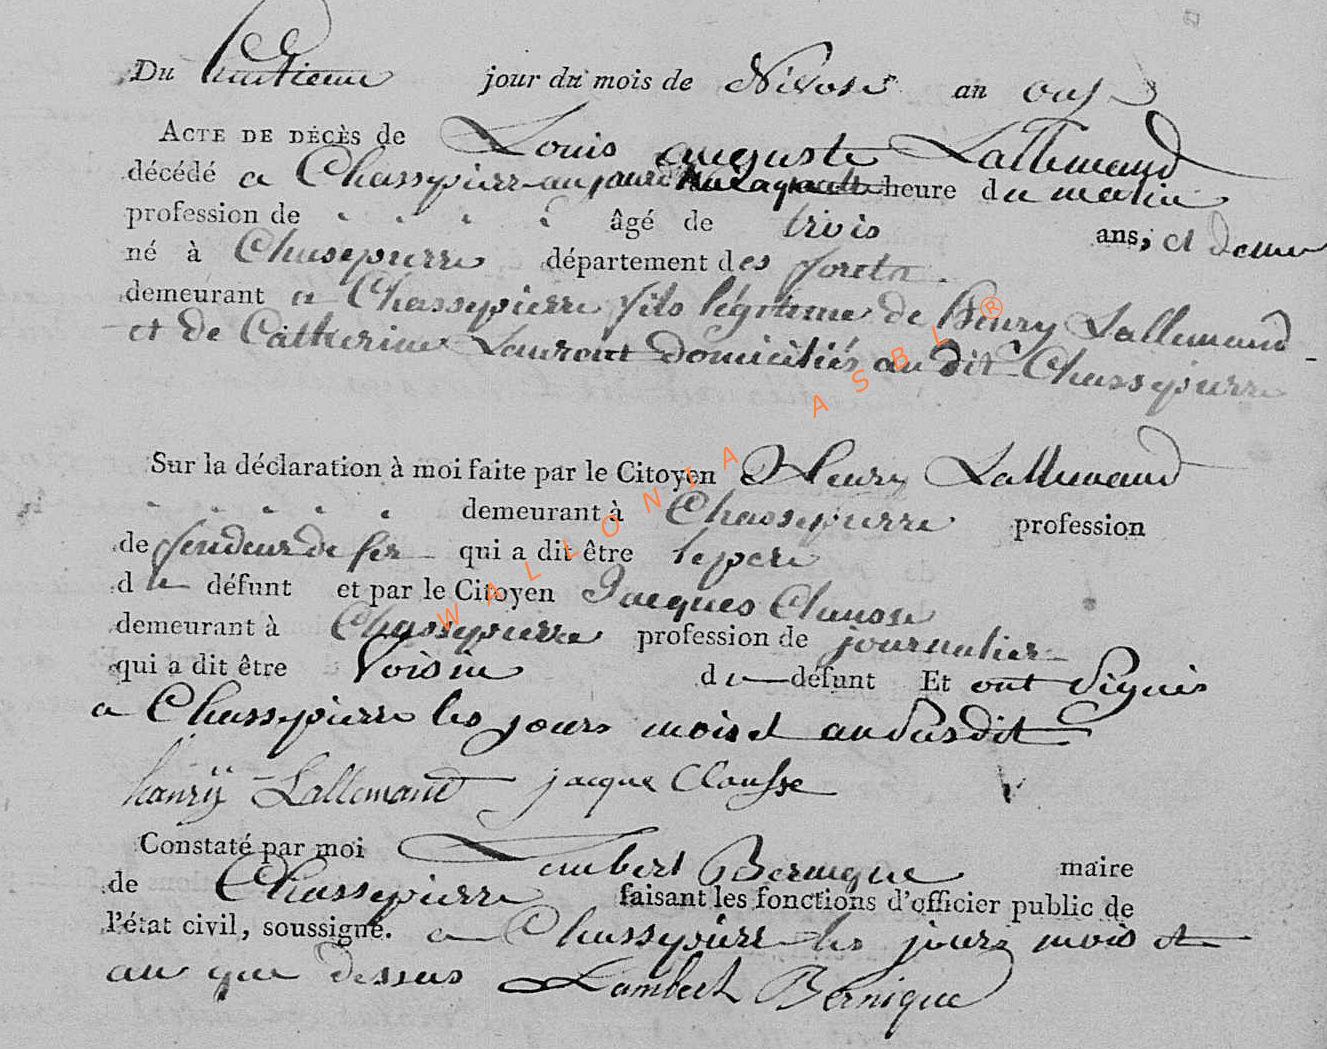 Du huitieme jour du mois de Nivose an onze
ACTE DE DÉCÈS de Louis auguste Lallemand
décédé a Chassepierre aujourd'hui a quatre heure du matin
profession de . . . . âgé de trois ans, et demi
né à Chassepierre département des forets
demeurant a Chassepierre fils légitime de Henry Lallemand
et de Catherine Laurent domiciliés au dit Chassepierre
Sur la déclaration à moi faite par le Citoyen Henry Lallemand
. . . . . demeurant à Chassepierre profession
de fendeur de fer qui a dit être le pere
d le défunt et par le Citoyen Jacques Clausse
demeurant à Chassepierre profession de journalier
qui a dit être Voisin du défunt Et ont Signés
a Chassepierre les jours mois et an Susdit
henrÿ Lallemand jacque Clausse
Constaté par moi Lambert Bernique maire
de Chassepierre faisant les fonctions d'officier public de
l'état civil, soussigné. a Chassepierre les jours mois et
an que dessus Lambert Bernique
WALLONIA ASBL ®